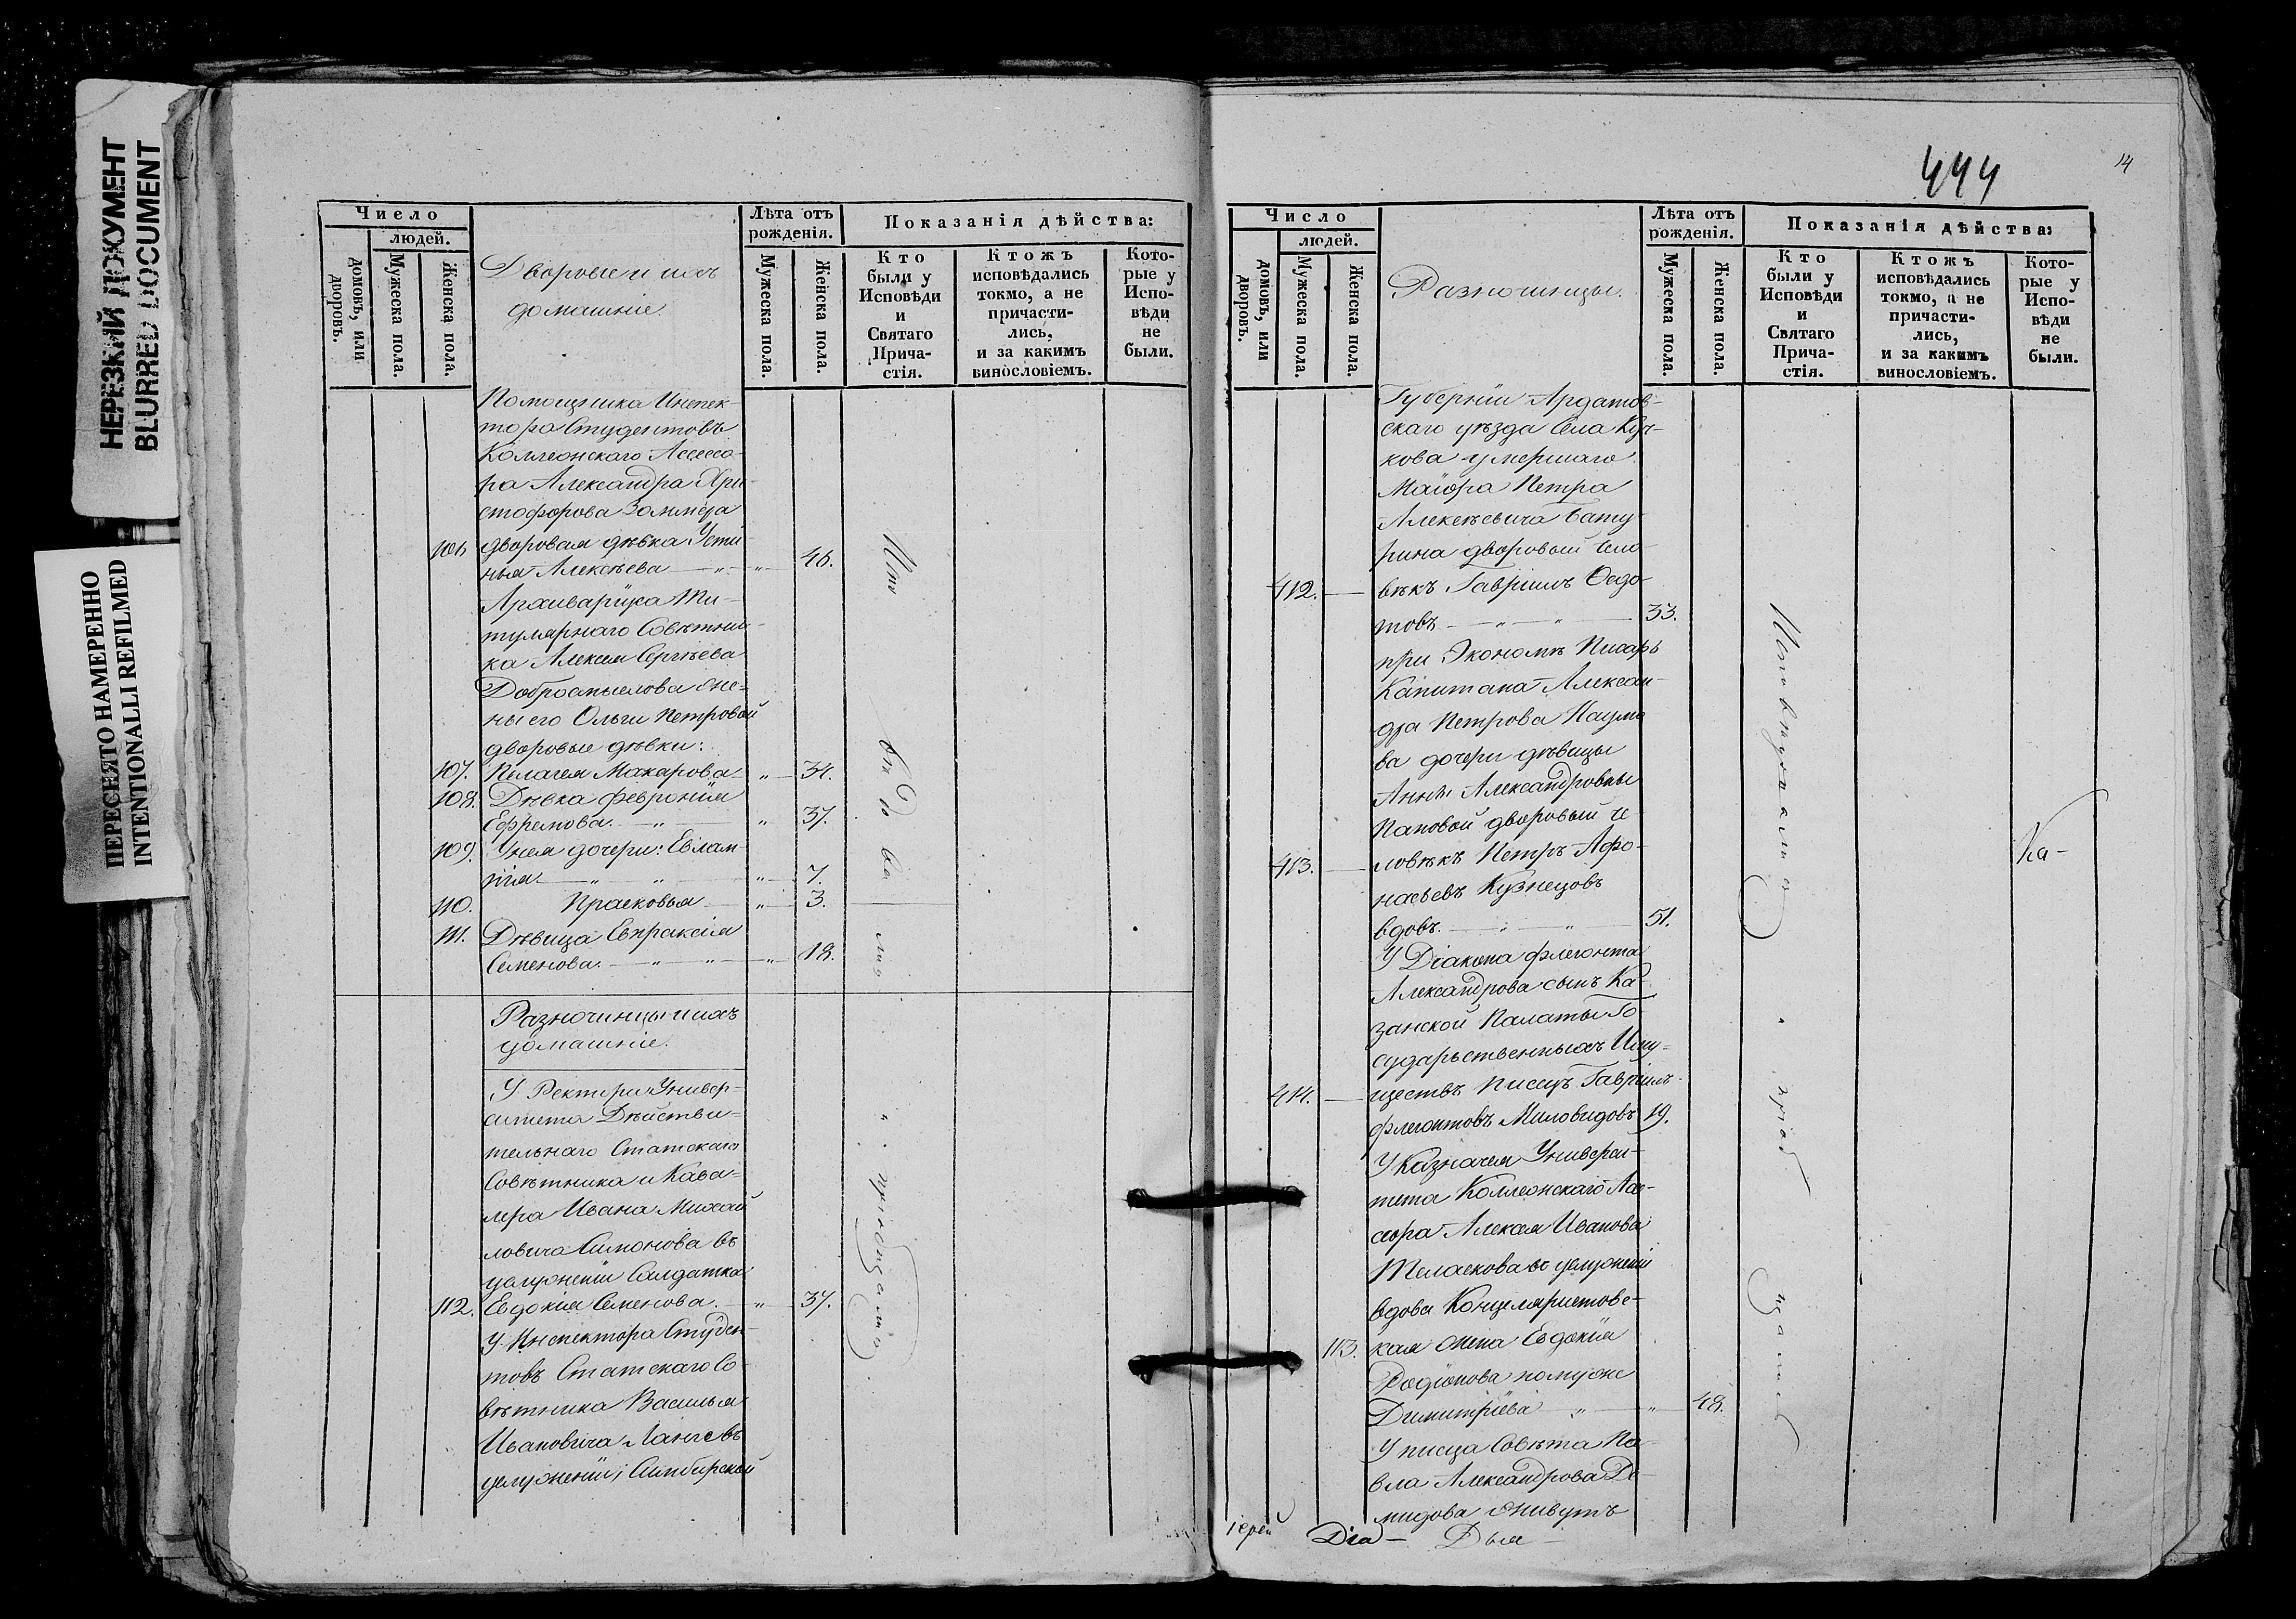 НЕРЕЗКИЙ ДОКУМЕНТ
BLURRED DOCUMENT
ПЕРЕСНЯТО НАМЕРЕННО
INTENTIONALLI REFILMED
Число
домовъ, или дворовъ.
людей.
Мужеска пола.
Женска пола.
Дворовые и ихъ
домашніе.
Лѣта отъ рожденія.
Мужеска пола.
Женска пола.
Показанія дѣйства:
Кто были у Исповѣди и Святаго Прича-стія.
Ктожъ исповѣдались токмо, а не причасти-лись, и за какимъ винословіемъ.
Кото-рые у Испо-вѣди не были.
Помощника Инспек-
тора Студентовъ
Коллежскаго Ассессо-
ра Александра Хри-
стофорова Зоммера
106 дворовая дѣвка Усти
нья Алексѣева — " — " — 46.
Архиваріуса Ти-
тулярнаго Совѣтни-
ка Алексея Сергѣева
Добросмыслова же-
ны его Ольги Петровой
дворовые дѣвки:
107. Пелагея Макарова " — 34.
108. Дѣвка Февронія
Ефремова. — " — " 37.
109. У нея дочери: Евлам-
пія — " — " — " — 7.
110. Прасковья — " — 3.
111. Дѣвица Евпраксія
Семенова. — " — " — " — 18.
Разночинцы и ихъ
домашніе.
У Ректора Универ-
ситета Дѣйстви-
тельнаго Статскаго
Совѣтника и Кава-
лера Ивана Михай
ловича Симонова въ
услуженіи Салдатка
112. Евдокія Семенова. — " — 37.
У Инспектора Студен-
товъ Статскаго Со-
вѣтника Василья
Ивановича Ланге въ
услуженіи; Симбирской
444
14
Число
домовъ, или дворовъ.
людей.
Мужеска пола.
Женска пола.
Разночинцы.
Лѣта отъ рожденія.
Мужеска пола.
Женска пола.
Показанія дѣйства:
Кто были у Исповѣди и Святаго Прича-стія.
Ктожъ исповѣдались токмо, а не причасти-лись, и за какимъ винословіемъ.
Кото-рые у Испо-вѣди не были.
Губерніи Ардатов-
скаго уѣзда Села
кова умершаго
Маіора Петра
Алексѣевича Бату
рина дворовый чело-
412. — вѣкъ Гавріилъ Ѳедо-
товъ — " — " — 33.
при Экономѣ Писарь
Капитана Алексан-
дра Петрова Наумо
ва дочери дѣвицы
Анны Александровны
Пановой дворовый че
413. — ловѣкъ Петръ Афо-
насьевъ Кузнецовъ
вдовъ. — " — " 51.
У Діакона Флегонта
Александрова сынъ Ка
занской Палаты Го
сударьственныхъ Иму-
414. — ществъ писецъ Гавріилъ
Флегонтовъ Миловидовъ 19.
У Казначея Универси-
тета Коллежскаго Асе-
сора Алексея Иванова
въ услуженіи
вдова Канцеляристов-
113. кая жена Евдокія
Родіонова по мужѣ
Димитріева — " — " 48.
У писца Совѣта Па
вла Александрова Де-
мидова живутъ
Ка-
Іерей Діа— Дья—